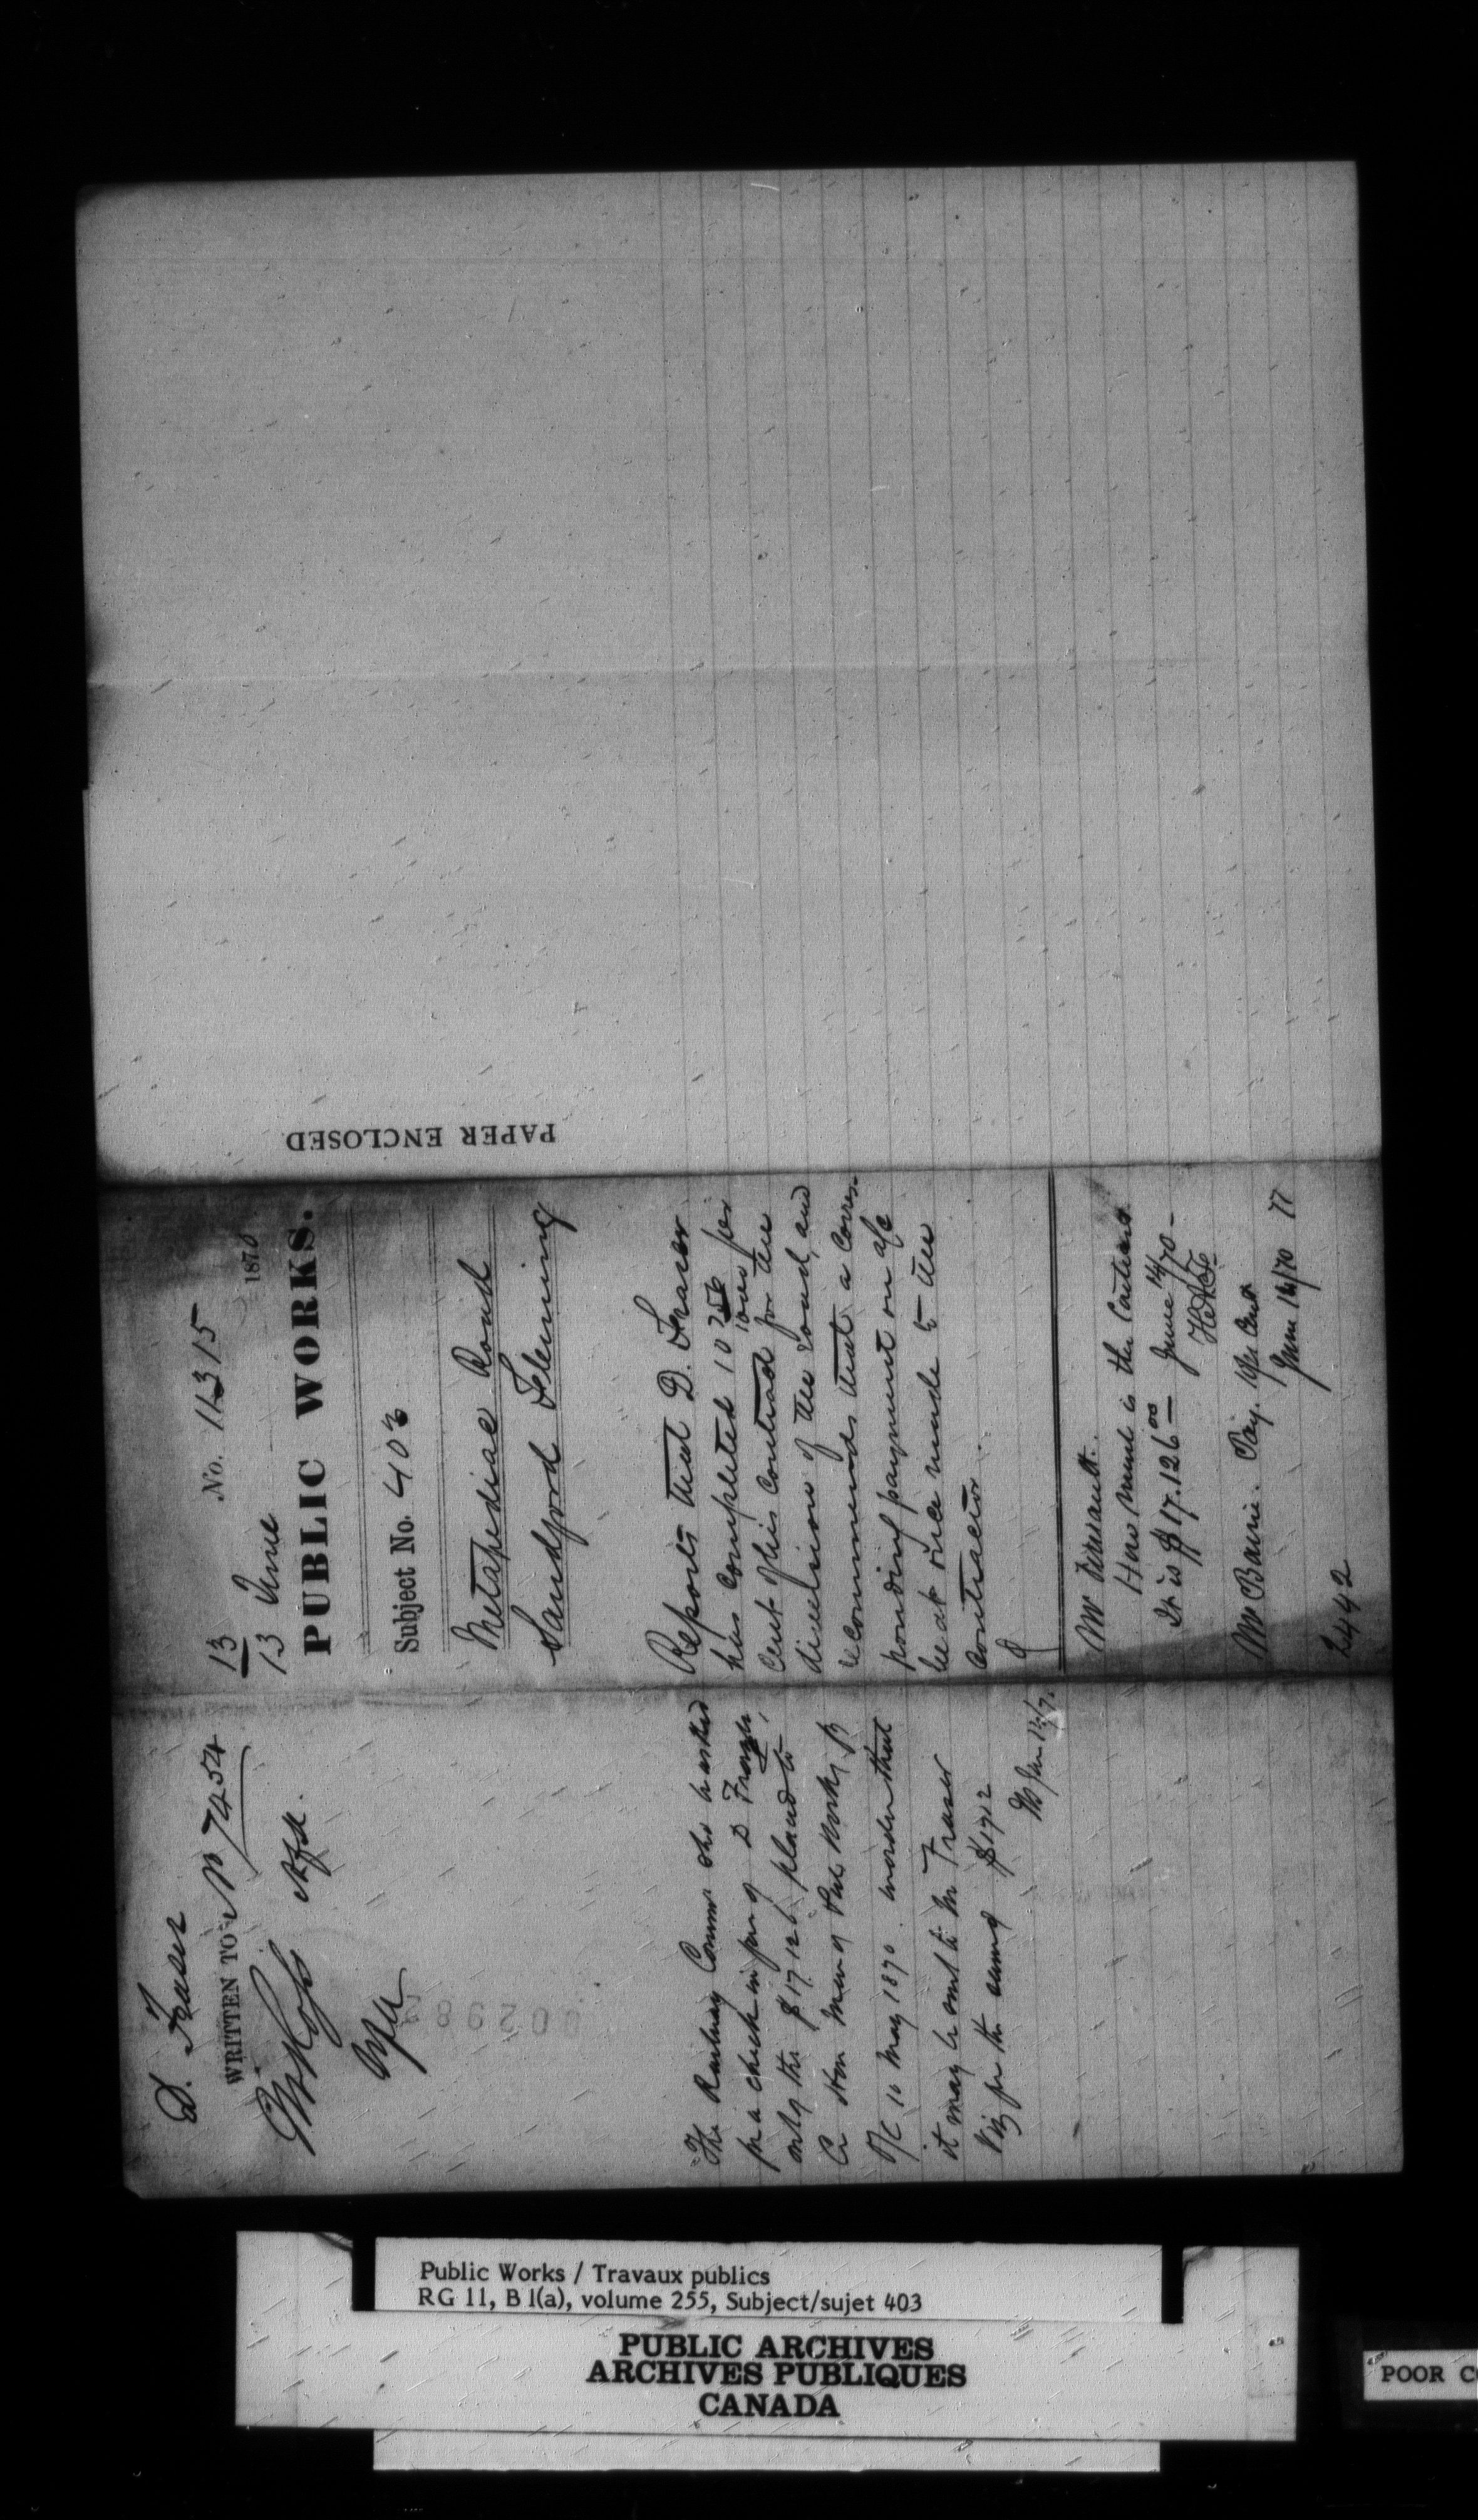 No. 11315
13
13 June 1870
PUBLIC WORKS.
Subject No. 403
Metapediac Road
Sandford Fleming
Reports that D. Fraser
has completed 10 256/1000 per
cent of his contract for the
diversions of the road, and
recommends that a corres-
ponding payment on a/c
be at once made to the
contractor.
Mr
How much is the Contract
It is $17.126 00 June 14/70
Mr Baine. Pay. 10 per Cent
June 14/70
2442
D. Fraser
WRITTEN TO No 7454
The Railway Commrs to be asked
for a check in favor of D Fraser
only the $17126 placed to
Cr Hon Min of Pub Works by
O/C 10 May 1870 in order that
it may be sent to Mr Fraser
Viz for the sum of $1712
002982
PAPER ENCLOSED
Public Works / Travaux publics
RG 11, B 1(a), volume 255, Subject/sujet 403
PUBLIC ARCHIVES
ARCHIVES PUBLIQUES
CANADA
POOR C